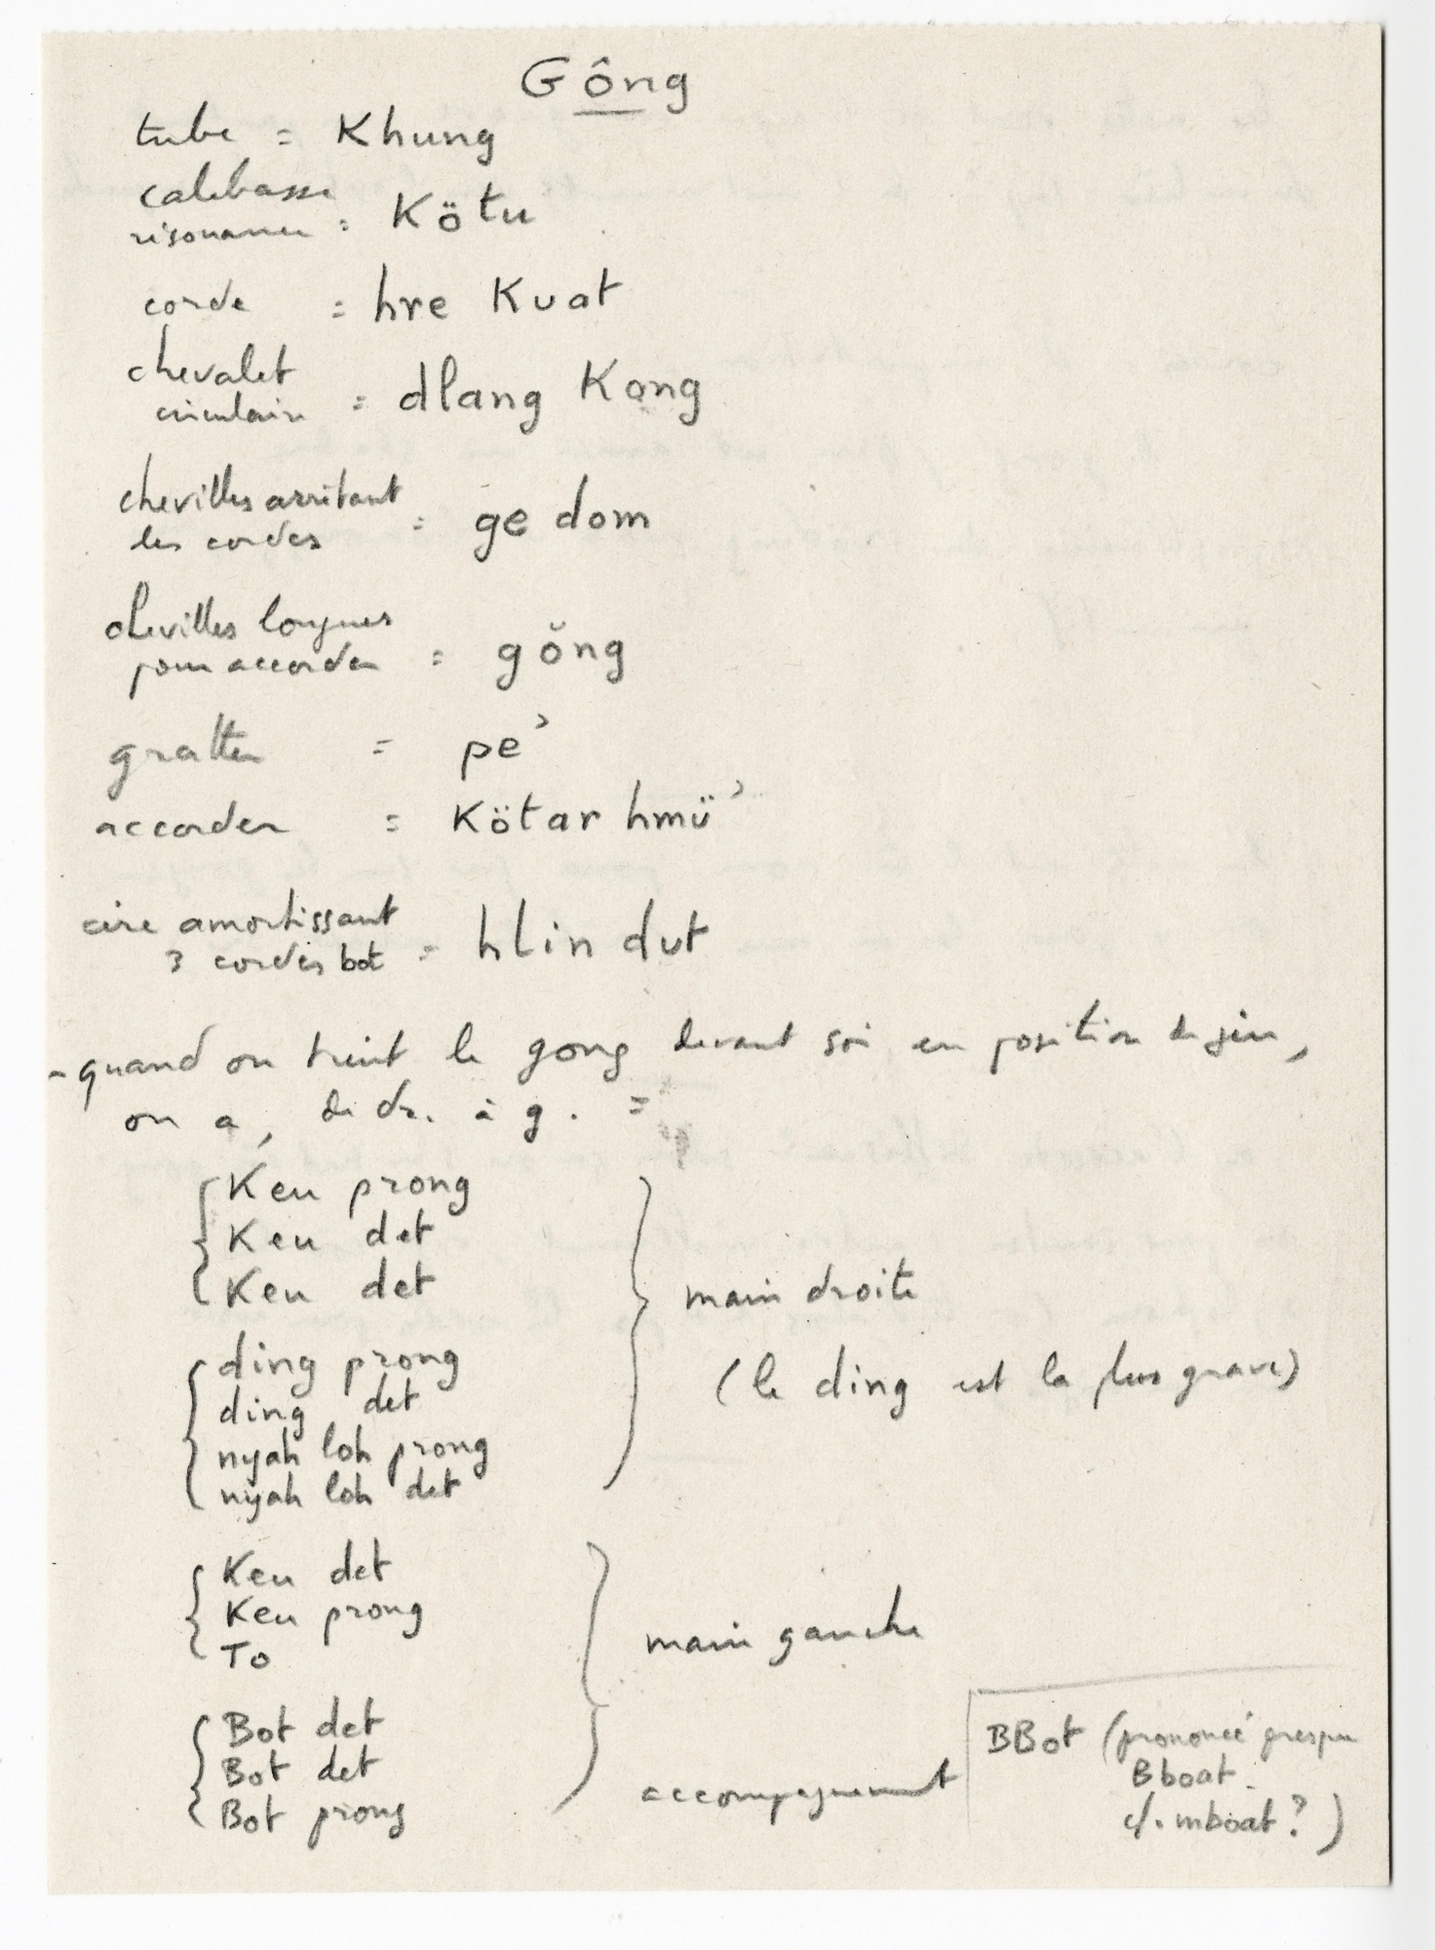 Gông
tube = Khung
calebasse
résonance = Kötu
corde = hre Kuat
chevalet
circulaire = dlang Kong
chevilles arrêtant
les cordes = ge dom
chevilles longues
pour accorder = gŏng
gratter = pe'
accorder = Kötar hmü'
cire amortissant
3 cordes bot = hlin dut
- quand on tient le gong devant soi en position de jeu,
on a, de dr. à g. =
Keu prong
Keu det
Keu det
main droite
ding prong
(le ding est la plus grave)
ding det
nyah loh prong
nyah loh det
Keu det
Keu prong
To
main gauche
Bot det
Bot det
Bot prong
accompagnement
BBot (prononcé presque
Bboat
cf. mboat ? )